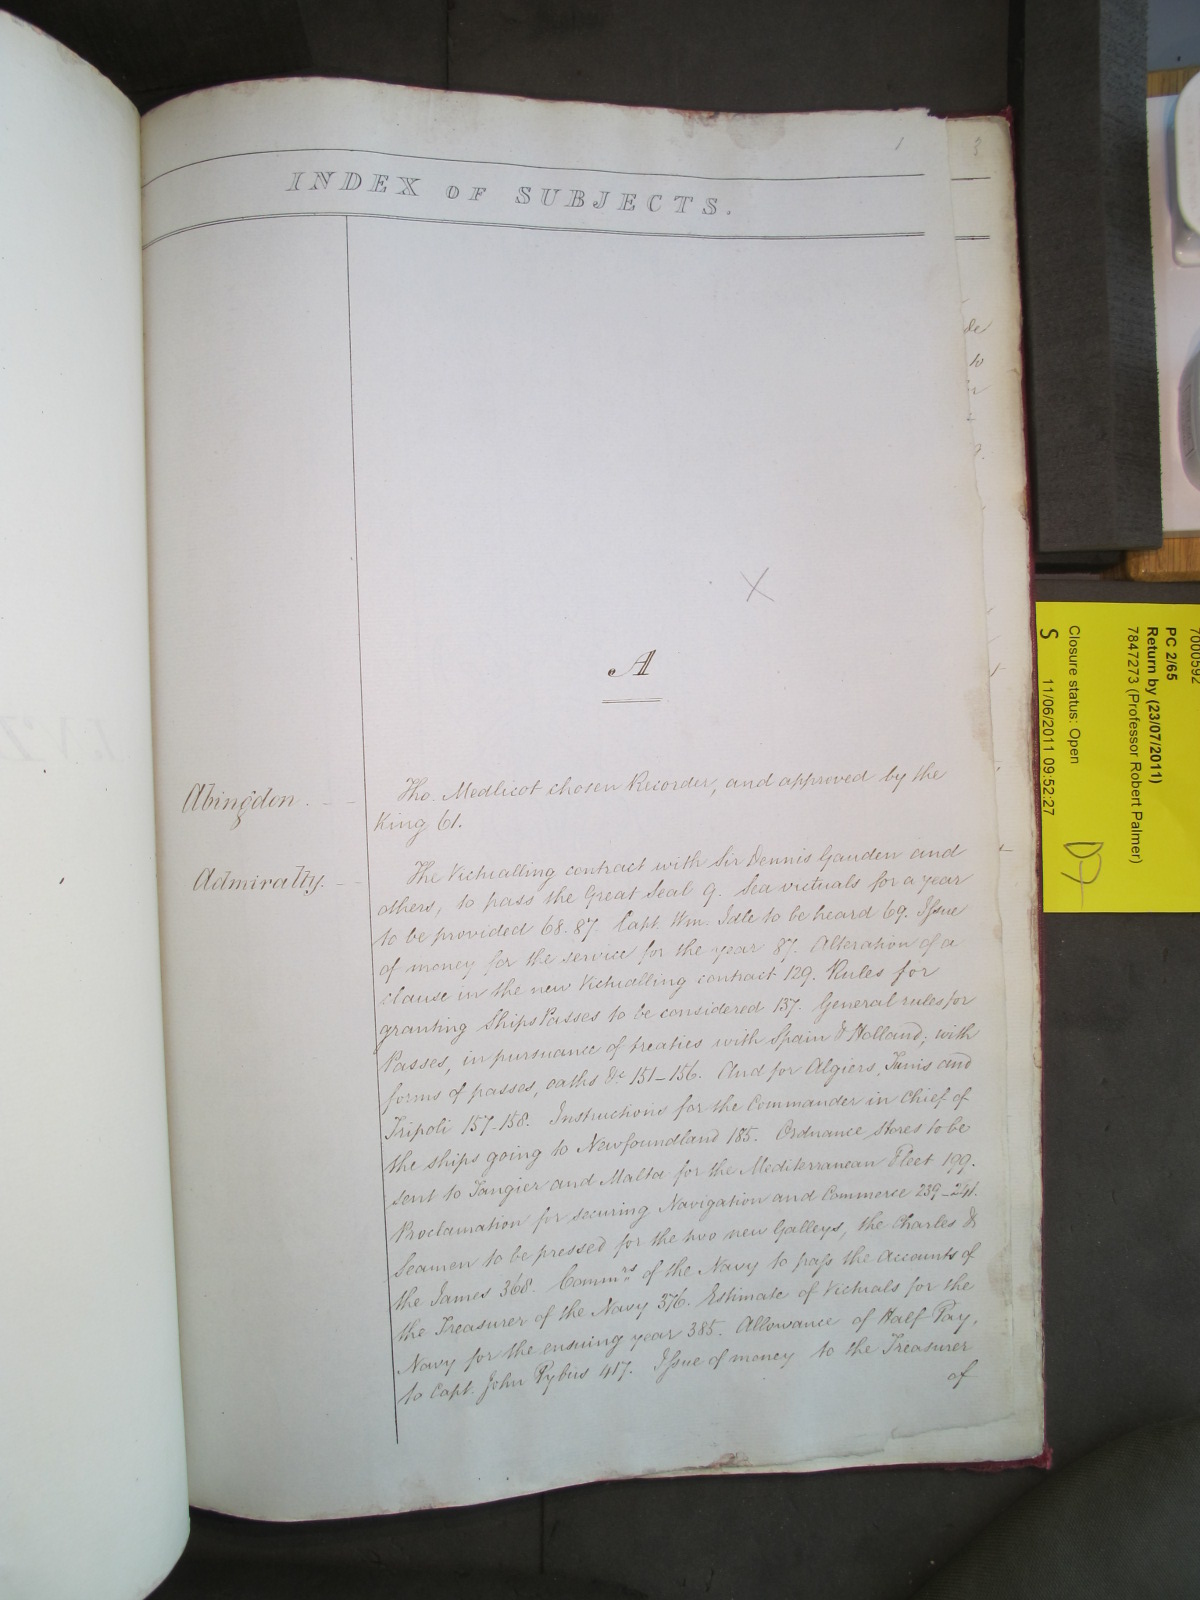 1
3
INDEX OF SUBJECTS.
A
Abingdon.
Tho. Medlicot chosen Recorder, and approved by the
King 61.
Admiralty.
The Victualling contract with Sir Dennis Gauden and
others, to pass the Great Seal 9. Sea victuals for a year
to be provided 68. 87. Capt. Wm. Idle to be heard 69. Issue
of money for the service for the year 87. Alteration of a
clause in the new Victualling contract 129. Rules for
granting Ships Passes to be considered 137. General rules for
Passes, in pursuance of treaties with Spain & Holland; with
forms of passes, oaths &c 151–156. And for Algiers, Tunis and
Tripoli 157–158. Instructions for the Commander in Chief of
the ships going to Newfoundland 185. Ordnance stores to be
sent to Tangier and Malta for the Mediterranean Fleet 199.
Proclamation for securing Navigation and Commerce 239–241.
Seamen to be pressed for the two new Galleys, the Charles &
the James 368. Commrs of the Navy to pass the Accounts of
the Treasurer of the Navy 376. Estimate of Victuals for the
Navy for the ensuing year 385. Allowance of Half Pay,
to Capt. John Pybus 417. Issue of money to the Treasurer
of
7000592
PC 2/65
Return by (23/07/2011)
7847273 (Professor Robert Palmer)
Closure status: Open
S 11/06/2011 09:52:27